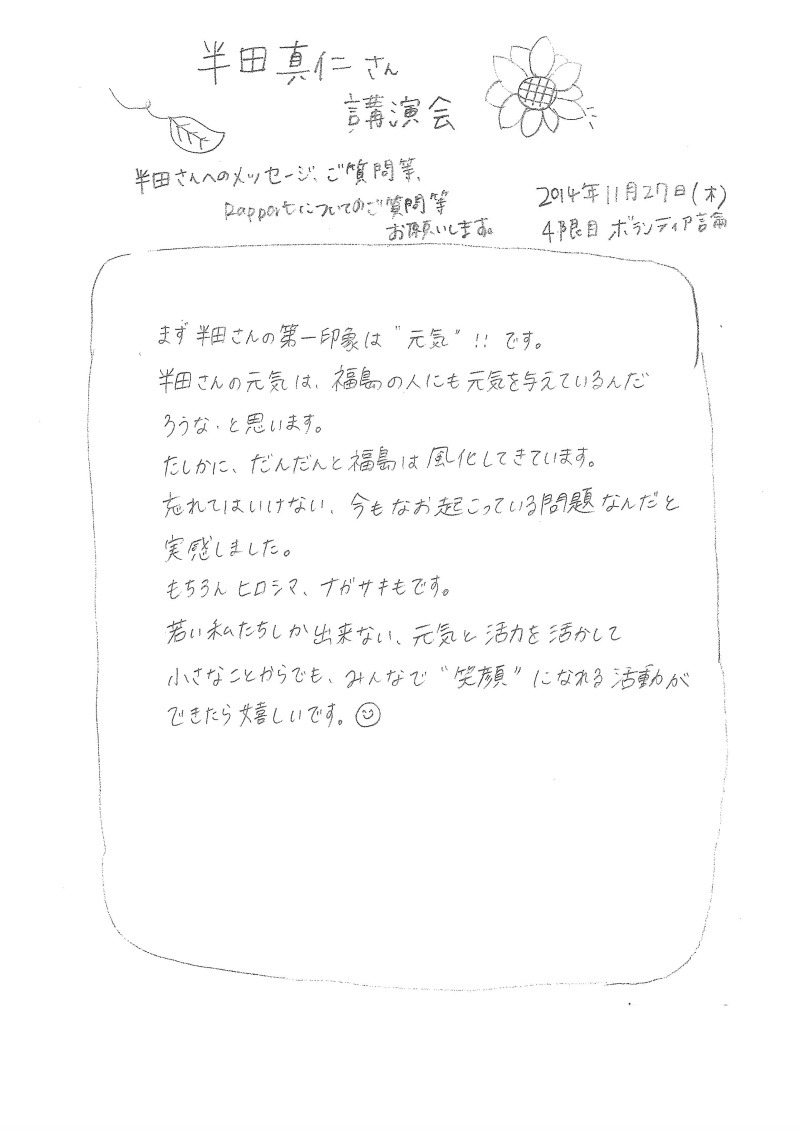 半田真仁さん
講演会
半田さんへのメッセージ、ご質問等、
Rapportについてのご質問等
お願いします。
2014年11月27日(木)
4限目 ボランティア論
まず半田さんの第一印象は"元気"!!です。
半田さんの元気は、福島の人にも元気を与えているんだ
ろうな・と思います。
たしかに、だんだんと福島は風化してきています。
忘れてはいけない、今もなお起こっている問題なんだと
実感しました。
もちろんヒロシマ、ナガサキもです。
若い私たちしか出来ない、元気と活力を活かして
小さなことからでも、みんなで"笑顔"になれる活動が
できたら嬉しいです。